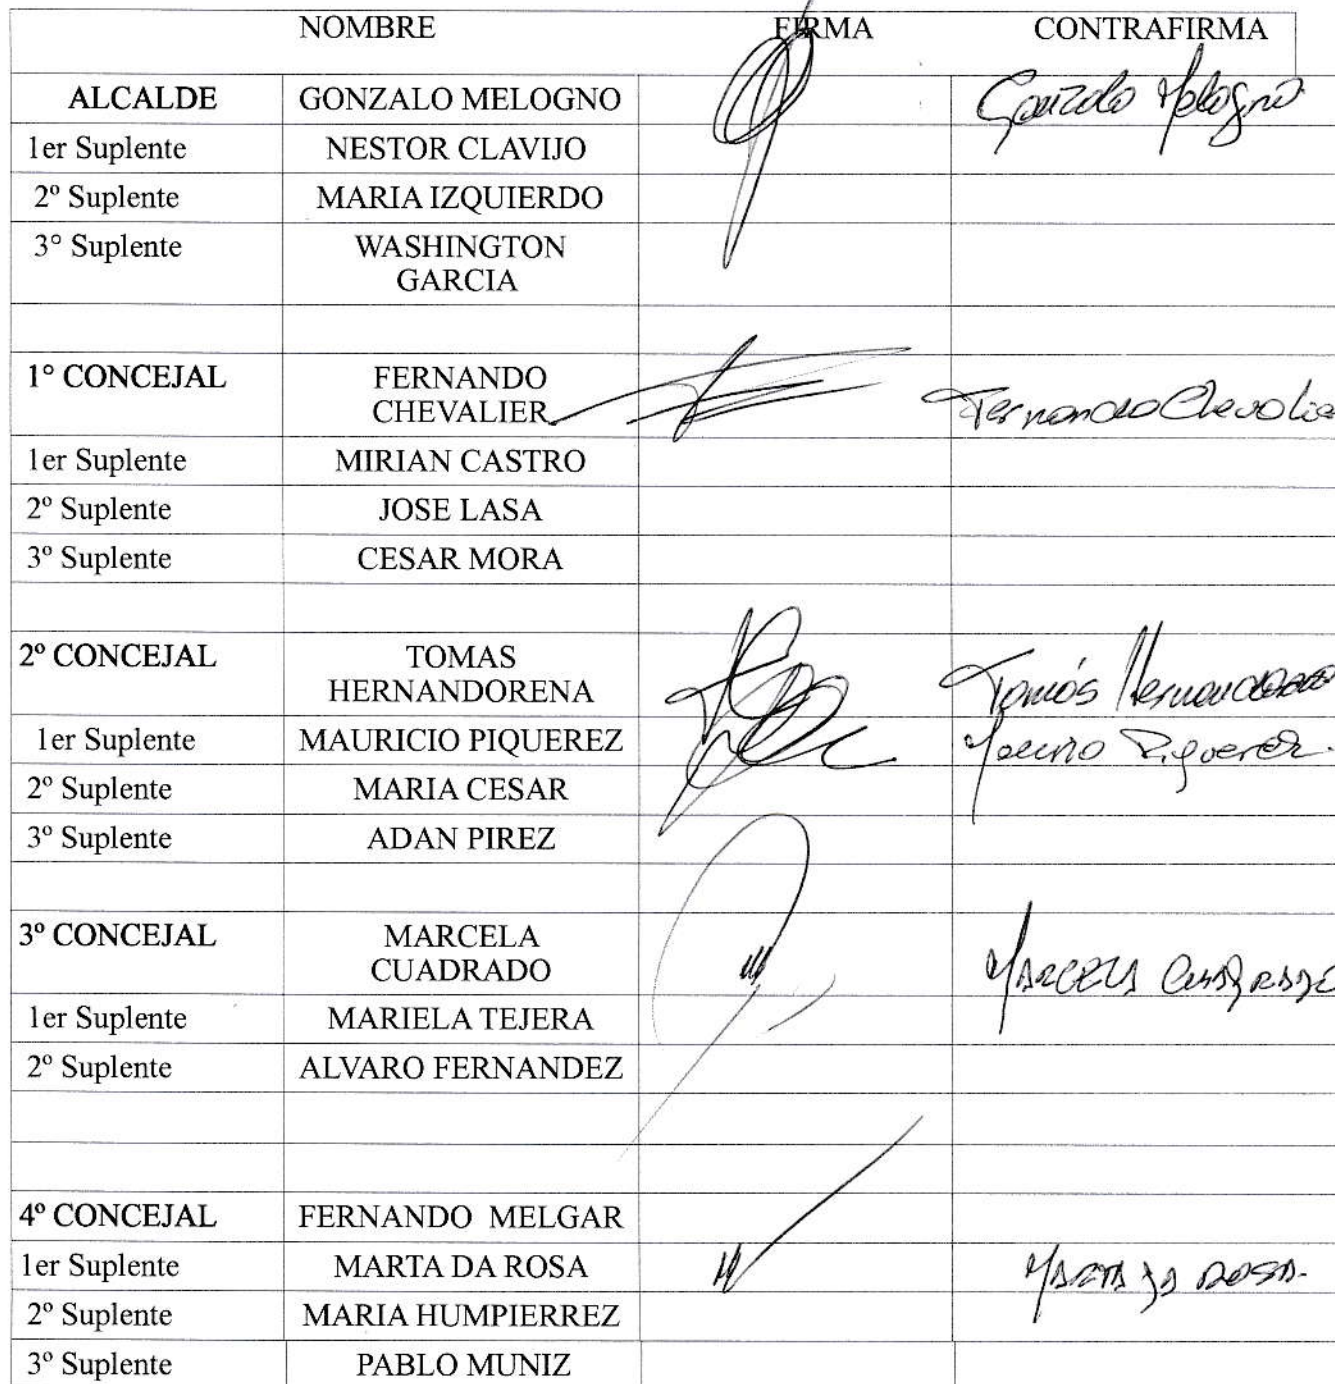 NOMBRE FIRMA CONTRAFIRMA
ALCALDE GONZALO MELOGNO Gonzalo Melogno
1er Suplente NESTOR CLAVIJO
2º Suplente MARIA IZQUIERDO
3° Suplente WASHINGTON
GARCIA
1° CONCEJAL FERNANDO
CHEVALIER Fernando Chevalie
1er Suplente MIRIAN CASTRO
2º Suplente JOSE LASA
3º Suplente CESAR MORA
2º CONCEJAL TOMAS
HERNANDORENA Tomás
1er Suplente MAURICIO PIQUEREZ Piquerez
2º Suplente MARIA CESAR
3º Suplente ADAN PIREZ
3º CONCEJAL MARCELA
CUADRADO MARCELA CUADRADO
1er Suplente MARIELA TEJERA
2º Suplente ALVARO FERNANDEZ
4º CONCEJAL FERNANDO MELGAR
1er Suplente MARTA DA ROSA MARTA DA ROSA.
2º Suplente MARIA HUMPIERREZ
3º Suplente PABLO MUNIZ